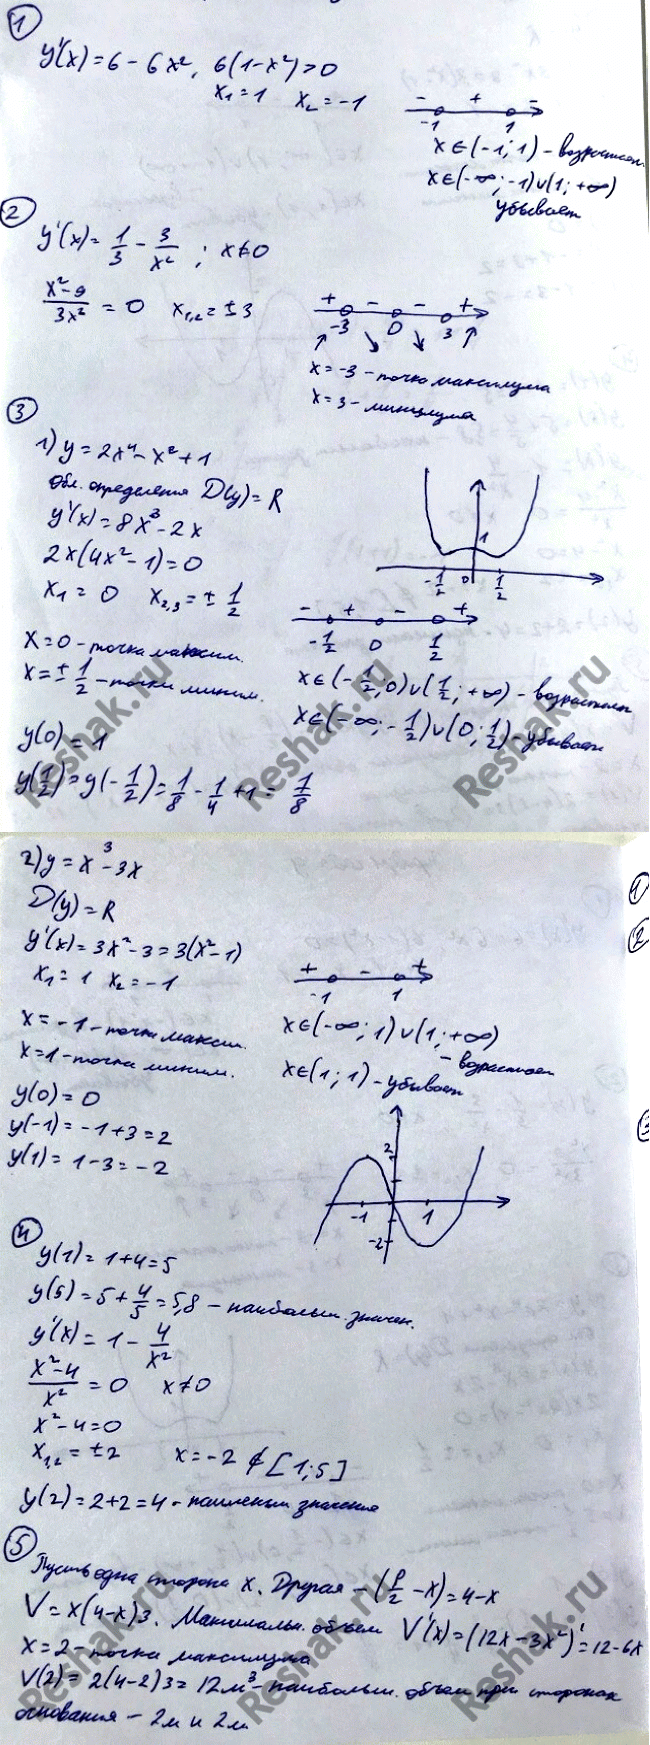 1
y'(x) = 6 - 6x², 6(1-x²)>0
x₁ = 1 x₂ = -1
- + -
-1 1
x∈(-1; 1) - возрастает
x∈(-∞; -1)∪(1; +∞)
убывает
2
y'(x) = 1/3 - 3/x² ; x≠0
(x²-9)/(3x²) = 0 x₁,₂ = ±3
+ - - +
-3 0 3
x = -3 - точка максимума
x = 3 - минимума
3
1) y = 2x⁴ - x² + 1
Обл. определения D(y) = R
y'(x) = 8x³ - 2x
2x(4x² - 1) = 0
x₁ = 0 x₂,₃ = ± 1/2
1
-1/2 0 1/2
- + - +
-1/2 0 1/2
x = 0 - точка максим.
x = ± 1/2 - точки миним.
x∈(-1/2; 0)∪(1/2; +∞) - возрастает
x∈(-∞; -1/2)∪(0; 1/2) - убывает
y(0) = 1
y(1/2) = y(-1/2) = 1/8 - 1/4 + 1 = 7/8
Reshak.ru
Reshak.ru
Reshak.ru
2) y = x³ - 3x
D(y) = R
y'(x) = 3x² - 3 = 3(x² - 1)
x₁ = 1 x₂ = -1
+ - +
-1 1
x = -1 - точка максим.
x = 1 - точка миним.
x∈(-∞; 1)∪(1; +∞)
- возрастает
x∈(1; 1) - убывает
y(0) = 0
y(-1) = -1 + 3 = 2
y(1) = 1 - 3 = -2
2
-1 1
-2
4
y(1) = 1 + 4 = 5
y(5) = 5 + 4/5 = 5,8 - наибольш. значен.
y'(x) = 1 - 4/x²
(x²-4)/x² = 0 x≠0
x² - 4 = 0
x₁,₂ = ±2 x = -2 ∉ [1; 5]
y(2) = 2 + 2 = 4 - наименьш значение
5
Пусть одна сторона x. Другая - (P/2 - x) = 4 - x
V = x(4-x)3. Максимальн. объем V'(x) = (12x - 3x²)' = 12 - 6x
x = 2 - точка максимума
V(2) = 2(4-2)3 = 12м³ - наибольш. объем при сторонах
основания - 2м и 2м
Reshak.ru
Reshak.ru
Reshak.ru
1
2
3